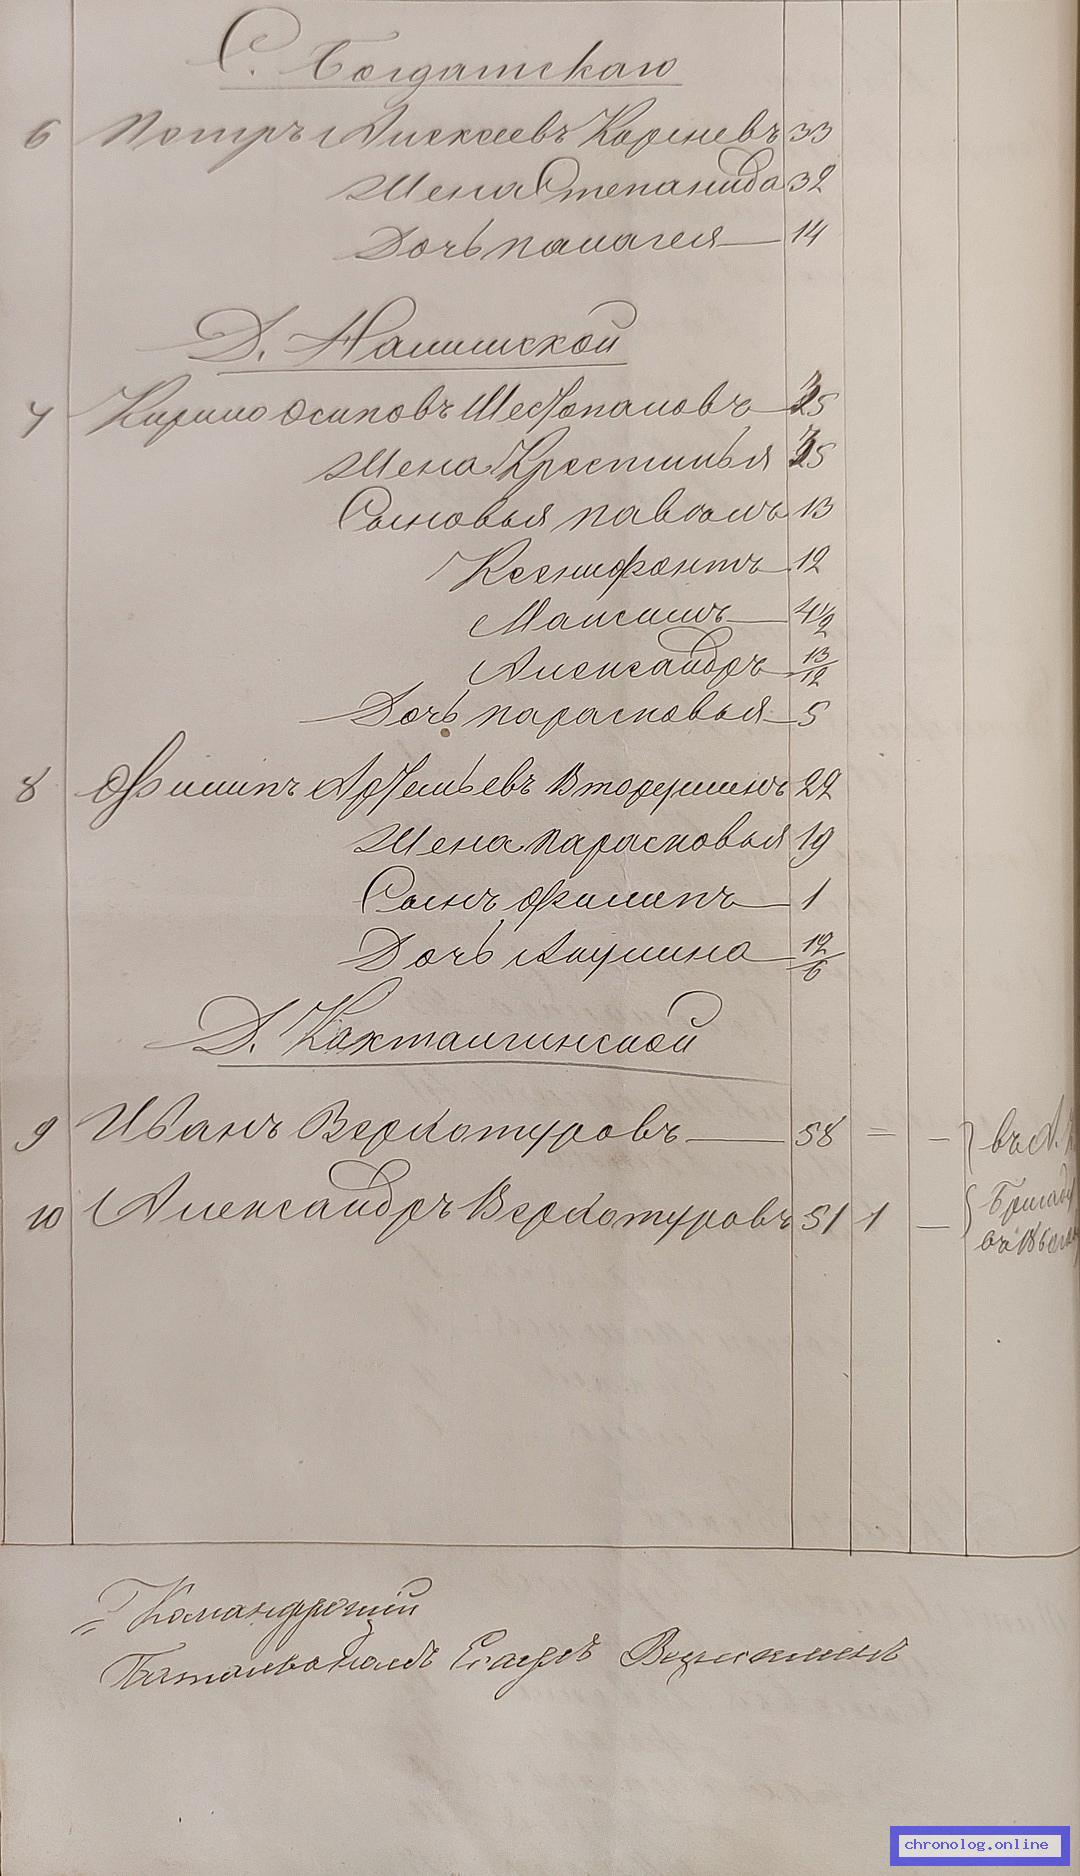 С. Богдатскаго
6 Петръ Алексеевъ Корневъ 33
Жена Степанида 32
Дочь Палагея 14
Д.
7 Кирило Осиповъ Шестопаловъ 35
Жена Крестинья 35
Сыновья Павелъ 13
Ксенифонтъ 12
Максимъ 4 1/2
Александръ 13/12
Дочь Парасковья 5
8 Филипъ Артемьевъ Вторушинъ 22
Жена Парасковья 19
Сынъ Филипъ 1
Дочь Акулина 12/6
Д. Кактолгинской
9 Иванъ Верхотуровъ 58 = —
10 Александръ Верхотуровъ 51 1 —
въ
въ
Командующій
Баталіономъ Есаулъ
chronolog.online